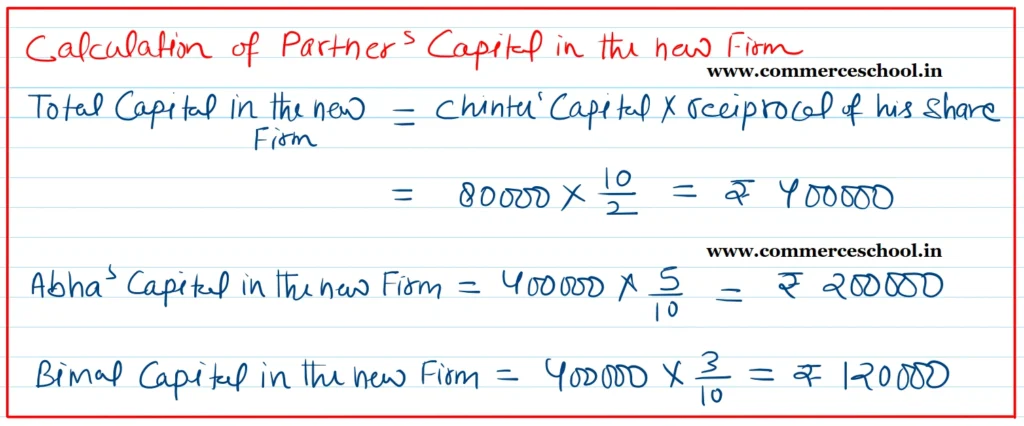 Calculation of Partner's Capital in the new Firm
www.commerceschool.in
Total Capital in the new Firm = Chintu' Capital × reciprocal of his share
= 80000 × 10/2 = ₹ 400000
www.commerceschool.in
Abha's Capital in the new Firm = 400000 × 5/10 = ₹ 200000
Bimal Capital in the new Firm = 400000 × 3/10 = ₹ 120000